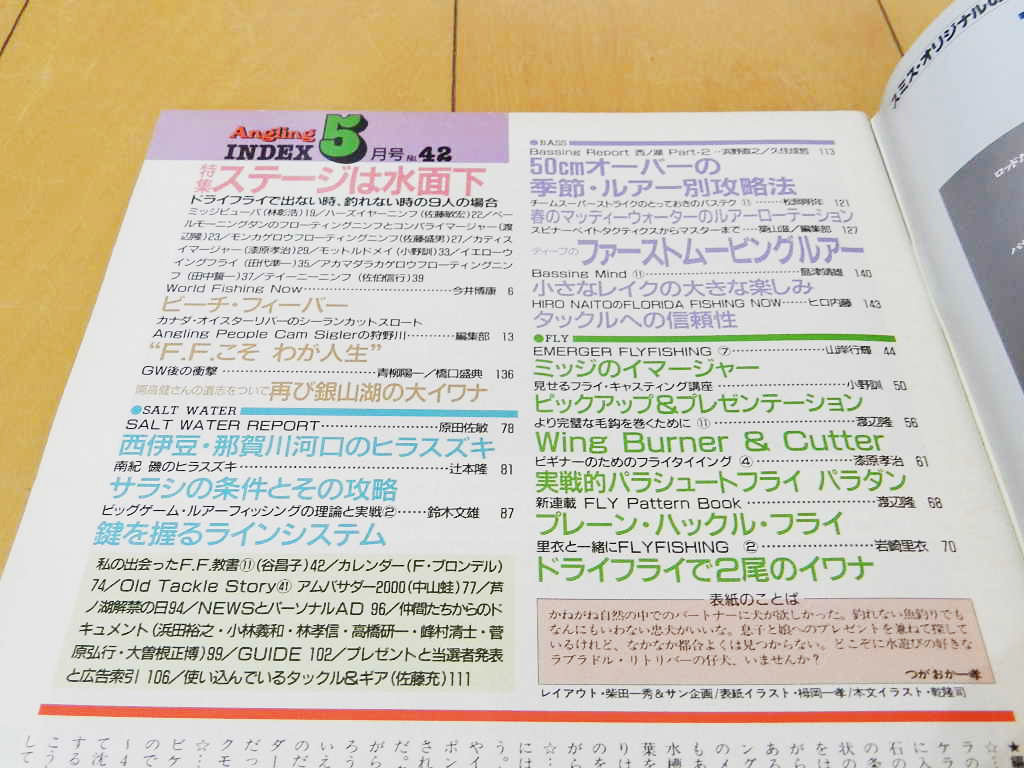 Angling
INDEX 5月号 No.42
特集 ステージは水面下
ドライフライで出ない時、釣れない時の9人の場合
ミッジピューパ(林彰浩)19/ハーズイヤーニンフ(佐藤敏宏)22/ペー
ルモーニングダンのフローティングニンフとコンパライマージャー(渡
辺隆)23/モンカゲロウフローティングニンフ(佐藤盛男)27/カディス
イマージャー(漆原孝治)29/モットルドメイ(小野訓)33/イエローウ
イングフライ(田代準一)35/アカマダラカゲロウフローティングニン
フ(田中誓一)37/テイーニーニンフ(佐伯信行)39
World Fishing Now 今井博康 6
ビーチ・フィーバー
カナダ・オイスターリバーのシーランカットスロート
Angling People Cam Siglerの狩野川 編集部 13
“F.F.こそ わが人生”
GW後の衝撃 青柳陽一/橋口盛典 136
開高健さんの遺志をついで 再び銀山湖の大イワナ
●SALT WATER
SALT WATER REPORT 原田佐敏 78
西伊豆・那賀川河口のヒラスズキ
南紀 磯のヒラスズキ 辻本隆 81
サラシの条件とその攻略
ビッグゲーム・ルアーフィッシングの理論と実戦② 鈴木文雄 87
鍵を握るラインシステム
私の出会ったF.F.教書⑪(谷昌子)42/カレンダー(F・ブロンデル)
74/Old Tackle Story㊶ アムバサダー2000(中山蛙)77/芦
ノ湖解禁の日94/NEWSとパーソナルAD 96/仲間たちからのド
キュメント(浜田裕之・小林義和・林孝信・高橋研一・峰村清士・菅
原弘行・大曽根正博)99/GUIDE 102/プレゼントと当選者発表
と広告索引 106/使い込んでいるタックル&ギア(佐藤充)111
●BASS
Bassing Report 西ノ湖 Part-2 113
50cmオーバーの
季節・ルアー別攻略法
チームスーパーストライクのとっておきのバステク⑪ 松岡明年 121
春のマッディーウォーターのルアーローテーション
スピナーベイトタクティクスからマスターまで 築山滋/編集部 127
ディープのファーストムービングルアー
Bassing Mind ⑪ 島津靖雄 140
小さなレイクの大きな楽しみ
HIRO NAITOのFLORIDA FISHING NOW ヒロ内藤 143
タックルへの信頼性
●FLY
EMERGER FLYFISHING ⑦ 山岸行輝 44
ミッジのイマージャー
見せるフライ・キャスティング講座 小野訓 50
ピックアップ&プレゼンテーション
より完璧な毛鈎を巻くために ⑪ 渡辺隆 56
Wing Burner & Cutter
ビギナーのためのフライタイイング ④ 漆原孝治 61
実戦的パラシュートフライ パラダン
新連載 FLY Pattern Book 渡辺隆 68
プレーン・ハックル・フライ
里衣と一緒にFLYFISHING ② 岩崎里衣 70
ドライフライで2尾のイワナ
表紙のことば
かねがね自然の中でのパートナーに犬が欲しかった。釣れない魚釣りでも
なんにもいわない忠犬がいいな。息子と娘へのプレゼントを兼ねて探して
いるけれど、なかなか都合よくは見つからない。どこぞに水遊びの好きな
ラブラドル・リトリバーの仔犬、いませんか?
つがおか一孝
レイアウト・柴田一秀&サン企画/表紙イラスト・栂岡一孝/本文イラスト・乾隆司
スミス・オリジナル
ロッド